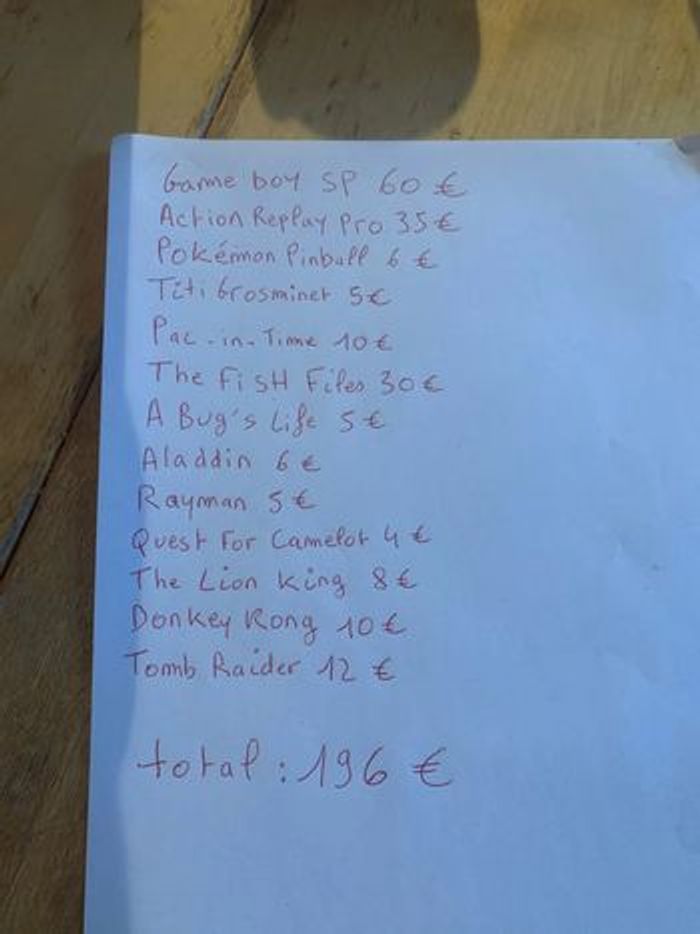 Game boy SP 60 €
Action Replay Pro 35 €
Pokémon Pinball 6 €
Titi Grosminet 5 €
Pac-in-Time 10 €
The FisH Files 30 €
A Bug's Life 5 €
Aladdin 6 €
Rayman 5 €
Quest For Camelot 4 €
The Lion King 8 €
Donkey Kong 10 €
Tomb Raider 12 €
total : 196 €